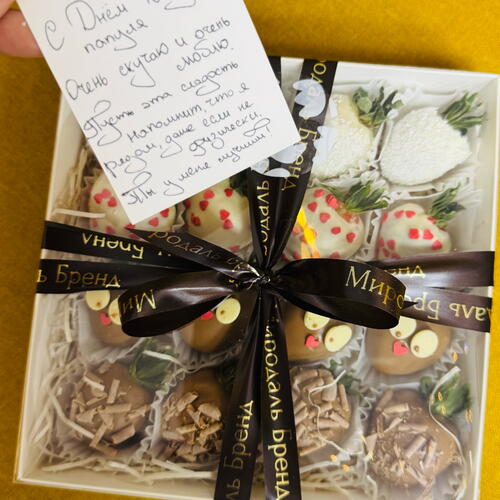 С Днём
папуля
Очень скучаю и очень
люблю.
Пусть эта сладость
напомнит, что я
рядом, даже если не
физически.
Ты у меня лучший!
Миродаль Бренд
Бренд
Миродаль Бренд
Миро
даль Бренд